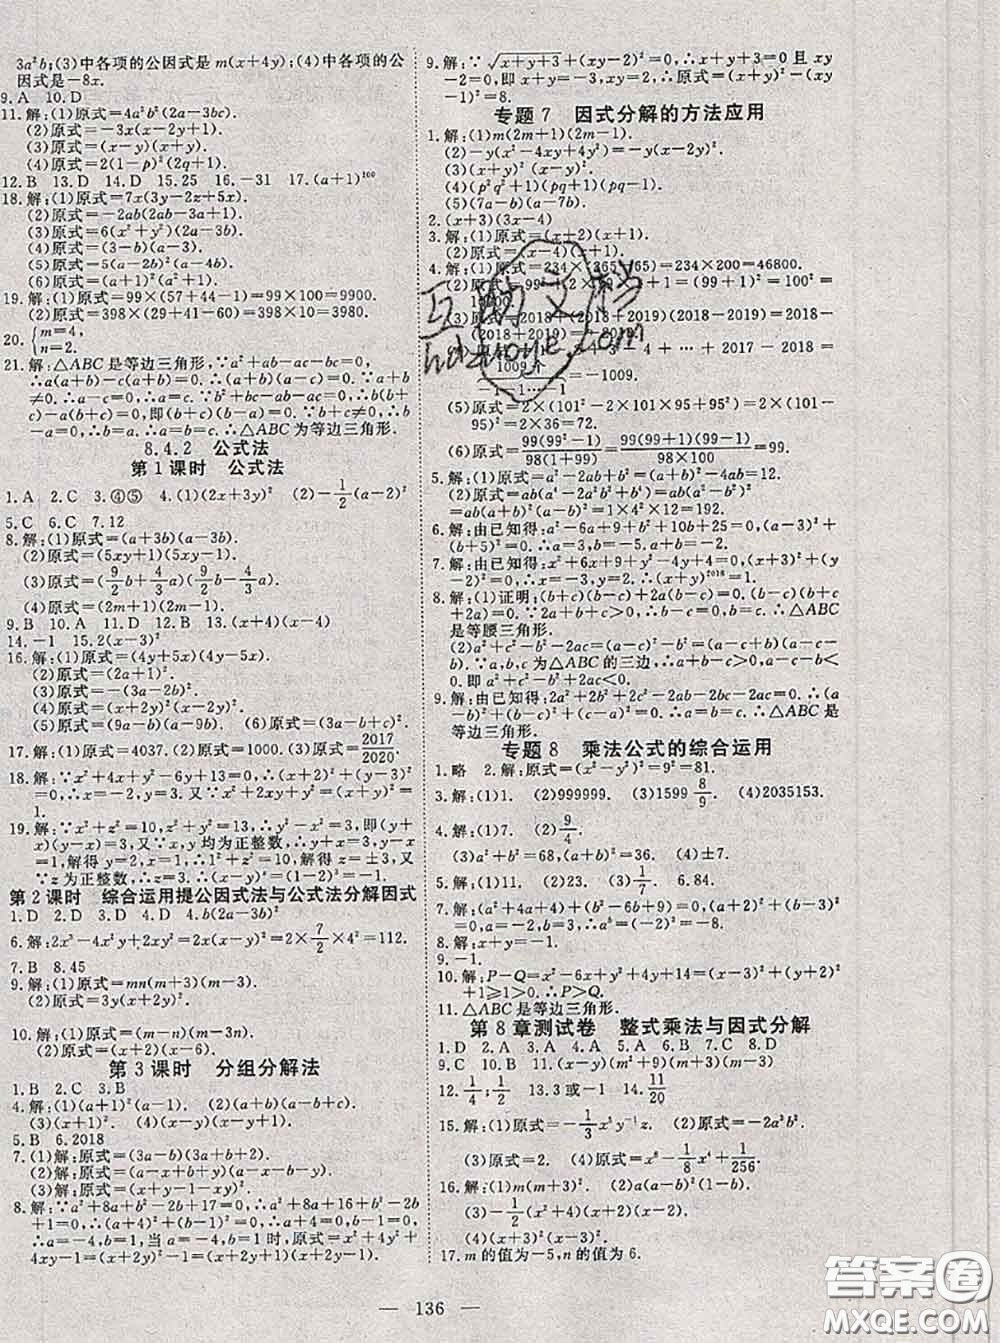 3a²b;(3)中各项的公因式是m(x+4y);(4)中各项的公
因式是-8x.
9.A 10.D
11.解:(1)原式=4a²b²(2a-3bc).
(2)原式=-3x(x-2y+1).
(3)原式=(x-y)(x+y).
(4)原式=2(1-p)²(2q+1).
12.B 13.D 14.D 15.25 16.-31 17.(a+1)¹⁰⁰
18.解:(1)原式=7x(3y-2z+5x).
(2)原式=-2ab(2ab-3a+1).
(3)原式=6(x²+y²)(2x-3y).
(4)原式=(3-b)(a-3).
(5)原式=(a-2b)²(a-b).
(6)原式=(a+1)²(a²+1).
19.解:(1)原式=99×(57+44-1)=99×100=9900.
(2)原式=398×(29+41-60)=398×10=3980.
20.{m=4,
n=2.
21.解:△ABC是等边三角形,∵a²+ab-ac-bc=0,
∴a(a+b)-c(a+b)=0.∴(a+b)(a-c)=0.∵a+b
≠0,∴a-c=0,即a=c.又∵b²+bc-ab-ac=0,
∴b(b+c)-a(b+c)=0,即(b+c)(b-a)=0.∵b+c
≠0,∴b-a=0,即b=a.∴a=b=c.∴△ABC为等边三角形.
8.4.2 公式法
第1课时 公式法
1.A 2.C 3.④⑤ 4.(1)(2x+3y)² (2)-1/2(a-2)²
5.C 6.C 7.12
8.解:(1)原式=(a+3b)(a-3b).
(2)原式=(5xy+1)(5xy-1).
(3)原式=(9/2b+4/3a)(9/2b-4/3a).
(4)原式=(2m+1)(2m-1).
9.B 10.A 11.D 12.B 13.(x+4)(x-4)
14.-1 15.2(x-3)²
16.解:(1)原式=(4y+5x)(4y-5x).
(2)原式=(2a+1)².
(3)原式=-(3a-2b)².
(4)原式=(x-y-2)².
(5)原式=(9a-b)(a-9b). (6)原式=(3a-b+c)².
17.解:(1)原式=4037.(2)原式=1000.(3)原式=2017/2020.
18.解:∵x²+4x+y²-6y+13=0,∴(x+2)²+(y-3)²
=0,∴x=-2,y=3.又∵x²=1,∴(-2)²=1,∴z=±
1.
19.解:∵x²+z²=10,z²+y²=13,∴y²-x²=3,即(y+
x)(y-x)=3,又∵x,y均为正整数,∴y+x=3,y-x
=1,解得y=2,x=1.∴1²+z²=10,解得z=±3,又∵
z为正整数,∴z=3,∴(x-y)²=(1-2)³=-1.
第2课时 综合运用提公因式法与公式法分解因式
1.D 2.D 3.D 4.D 4.b(2a-3b)²
6.解:2x³-4x²y+2xy²=2x(x-y)²=2×7/2×4²=112.
7.B 8.45
9.解:(1)原式=mn(m+3)(m-3).
(2)原式=3y(x+2y)².
10.解:(1)原式=(m-n)(m-3n).
(2)原式=(x+2)(x-6).
第3课时 分组分解法
1.B 2.C 3.B
4.解:(1)(a+1)²(a-1). (2)(a+b)(a-b+c).
(3)(x+1)(x+y). (4)(x-y)(x-y+1).
5.B 6.2018
7.(1)解:原式=(3a-b)(3a+b+2).
(2)解:原式=(a-x+y)(a+x-y).
(3)解:原式=(x+y-1-xy)².
8.解:∵a²+8a+b²-2b+17=0,∴a²+8a+16+b²-2b
+1=0,∴(a+4)²+(b-1)²=0,∴a+4=0,b-1=0,
∴a=-4,b=1,当a=-4,b=1时,原式=x²+4y²+
4xy-1=(x+2y)²-1=(x+2y+1)(x+2y-1).
9.解:∵√(x+y+3)+(xy-2)²=0,∴x+y+3=0且
xy-2=0,即x+y=-3,xy=2,∴原式=(x+y)²-(xy
-1)²=8.
专题7 因式分解的方法应用
1.解:(1)m(2m+1)(2m-1).
(2)-y(x²-4xy+4y²)=-y(x-2y)².
(3)(x+y)(x-y)³.
(4)(p²q²+1)(pq+1)(pq-1).
(5)(7a-b)(7b-a).
2.(x+3)(3x-4)
3.解:(1)原式=(x+2)(x+1).
(2)原式=(x-4)(x+1).
4.解:(1)原式=234×(365-165)=234×200=46800.
(5)原式=2×(101²-2×101×95+95²)=2×(101-
95)²=2×36=72.
(6)原式=99(99²-1)/98(1+99)=99(99+1)(99-1)/98×100=99.
5.解:(1)原式=a²-2ab+b²=(a+b)²-4ab=12.
(2)原式=ab(a⁴-2a²b²+b⁴)=ab(a²-b²)²
=ab(a+b)²(a-b)²=1×4²×12=192.
6.解:由已知得:a²-6a+9+b²+10b+25=0,(a-3)²+
(b+5)²=0.∴a=3,b=-5.∴a+b=-2.
7.解:由已知得:x²+6x+9+y²-4y+4=0,(x+3)²+(y
-2)²=0.∴x=-3,y=2.∴(x+y)²⁰¹⁸=1.
8.解:(1)证明:(b+c)(b-c)+2a(b-c)=0.∴(b-c)(b+c
+2a)=0.∵2a+b+c>0,∴b-c=0.∴b=c.∴△ABC
是等腰三角形.
(2)a²+c²-2ac-b²=(a-c)²-b²=(a-c+b)(a-c-
b).∵a,b,c为△ABC的三边,∴a+b-c>0,a-c-b<
0.即a²-b²+c²-2ac<0.
9.解:由已知得:2a²+2b²+2c²-2ab-2bc-2ac=0.(a-
b)²+(b-c)²+(a-c)²=0.∴a=b,b=c,a=c.∴
△ABC是等边三角形.
专题8 乘法公式的综合运用
1.略 2.解:原式=(x²-y²)²=9²=81.
3.解:(1)1. (2)999999. (3)1599 8/9. (4)2035153.
4.解:(1)7. (2)9/4.
(3)a²+b²=68,(a-b)²=36. (4)±7.
5.解:(1)23. (2)21. (3)1/7. 6.84.
7.解:(a²+4a+4)+(b²-6b+9)=0,(a+2)²+(b-3)²
=0,a=-2,b=3.
8.解:x+y=-1.
9.-1.
10.解:P-Q=x²-6x+y²+4y+14=(x-3)²+(y+2)²
+1≥1>0.∴P>Q.
11.△ABC是等边三角形.
第8章测试卷 整式乘法与因式分解
1.D 2.A 3.A 4.A 5.A 6.B 7.C 8.D
9.C 10.A 11.(x-y)(m²+9)(m+3)(m-3)
12.1/4;1/2 13.3或-1 14.11/20
15.解:(1)原式=-1/3x⁵y⁻¹z. (2)原式=-2a³b².
(3)原式=2. (4)原式=x⁸-1/8x⁴+1/256.
16.解:(1)m(m+3)². (2)a(a-2b)(a-b).
(3)-1/2(x²+4)(x+2)(x-2).
(4)(x+3)²(x-3)².
17.m的值为-5,n的值为6.
互助文档
hdzuoye.com
答案圈
MXQE.COM
— 136 —